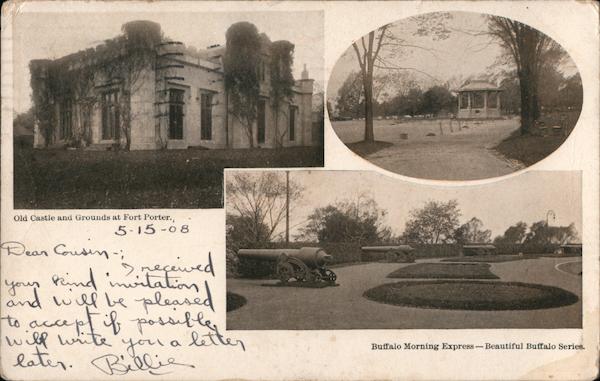 Old Castle and Grounds at Fort Porter.
5-15-08
Dear Cousin-;
I received
your kind invitation
and will be pleased
to accept if possible,
will write you a letter
later. Billie
Buffalo Morning Express—Beautiful Buffalo Series.